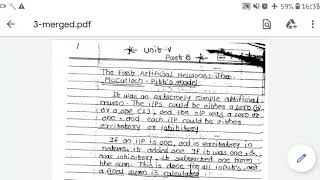 16:38
3-merged.pdf
1
Unit-V
Part B
The First Artificial Neuron: The
McCulloch-Pitt's model
It was an extremely simple artificial
The I/PS could be either a zero
or a one and the O/P was a zero or
one. and each I/P could be either
excitatory or inhibitory
If an I/P is one, and is excitatory in
nature, it added one. If it was one &
was inhibitory, it subtracted one from
the sum. This is done for all inputs, and
a final sum is calculated